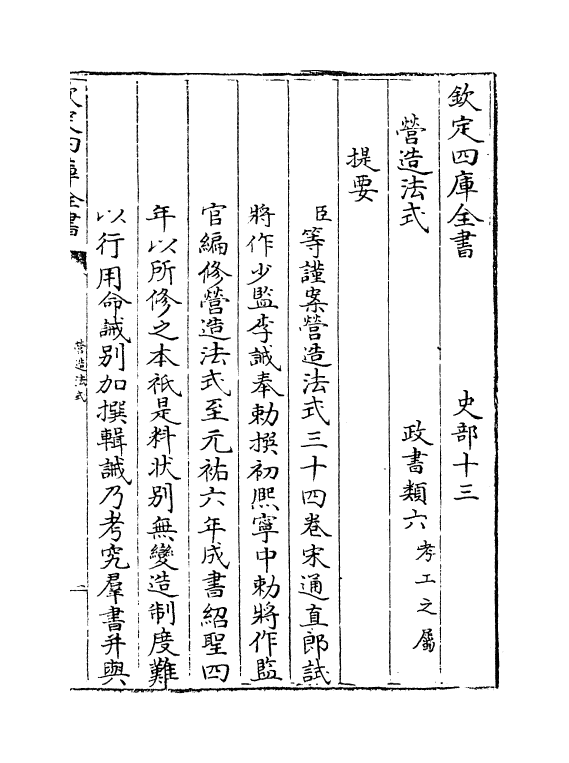 欽定四庫全書 史部十三
營造法式 政書類六考工之屬
提要
臣等謹案營造法式三十四卷宋通直郎試
將作少監李誡奉勅撰初熈寧中勅將作監
官編修營造法式至元祐六年成書紹聖四
年以所修之本秪是料狀别無變造制度難
以行用命誡别加撰輯誡乃考究羣書并與
欽定四庫全書
營造法式